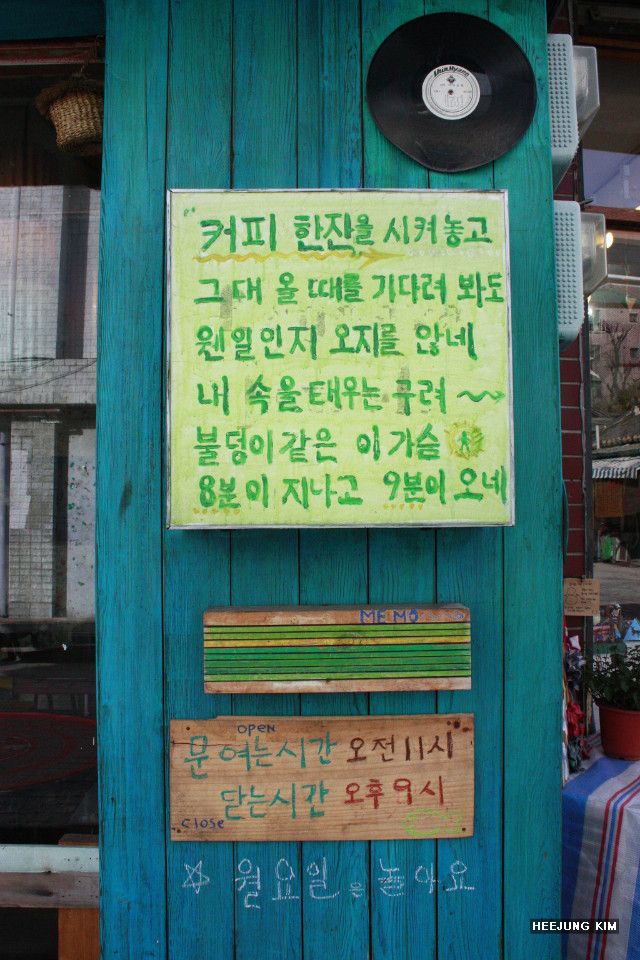 커피 한잔을 시켜놓고
그대 올 때를 기다려 봐도
웬일인지 오지를 않네
내 속을 태우는구려
불덩이 같은 이가슴
8분이 지나고 9분이 오네
MEMO
OPEN
문 여는시간 오전 11시
닫는시간 오후 9시
close
월요일은 놀아요
HEEJUNG KIM